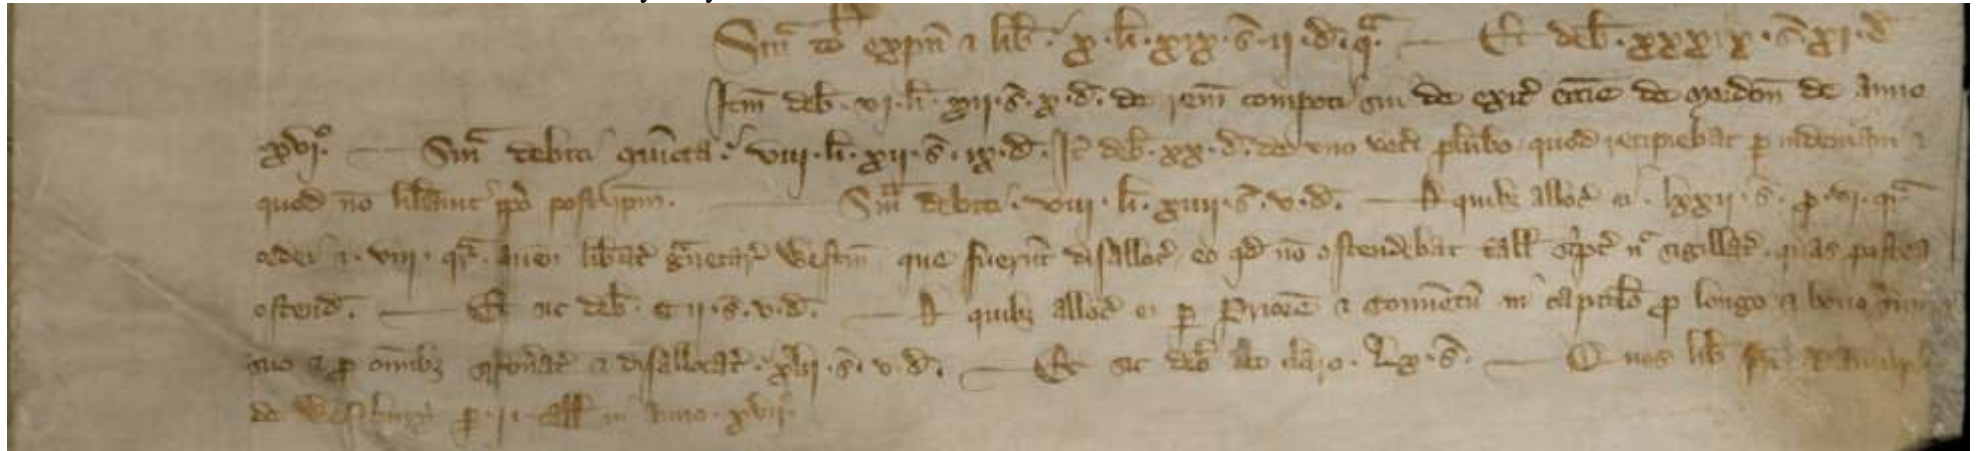 Sm̄ᵃ to͞l expn̄ ⁊ lib̄ · x · li · xix · s̄ · ii · d̄ · qᵃ · — Et deb̄ · xxxix · s̄ · xi · d̄
Itm̄ deb̄ · vj · li · xii · s̄ · x · d̄ · de rem̄ compoti sui de exit᷒ ecc̄ie de mordon̄ de anno
xvjº · — Sm̄ᵃ debiti coniūcta · viii · li · xii · s̄ · ix · d̄ · It᷒ deb̄ · xx · d̄ · de uno vet᷒i plūbo quod recipiebat ꝑ indentur̄am ⁊
quod nō lib̄avit postip̄m · Sm̄ᵃ debiti · viii · li · xiiii · s̄ · v · d̄ · — De quibȝ alloc̄ ei · lxxii · s̄ · ꝓ · vi · qrᵃ
ordei ⁊ · viii · qrᵃ · aueñ · lib̄at᷒ g̃netar᷒ Westm̄ que fuerūt disalloc̄ eo qd̄ nō ostendebat tall̄ sc̃pt᷒ nᵉ sigillat᷒ · quas postea
ostend̄ · — Et sic deb̄ · cii · s̄ · v · d̄ · — De quibȝ alloc̄ ei ꝑ Priorē ⁊ Conuentū in capitl̄o ꝓ longo ⁊ bono
suo ⁊ ꝓ om̄ibȝ ⁊ disallocat᷒ · xlii · s̄ · v · d̄ · — Et sic deb̄ de claro · Lx · s̄ · — De quos lib̄
de ꝑ · ii · tall̄ in anno · xvijº ·